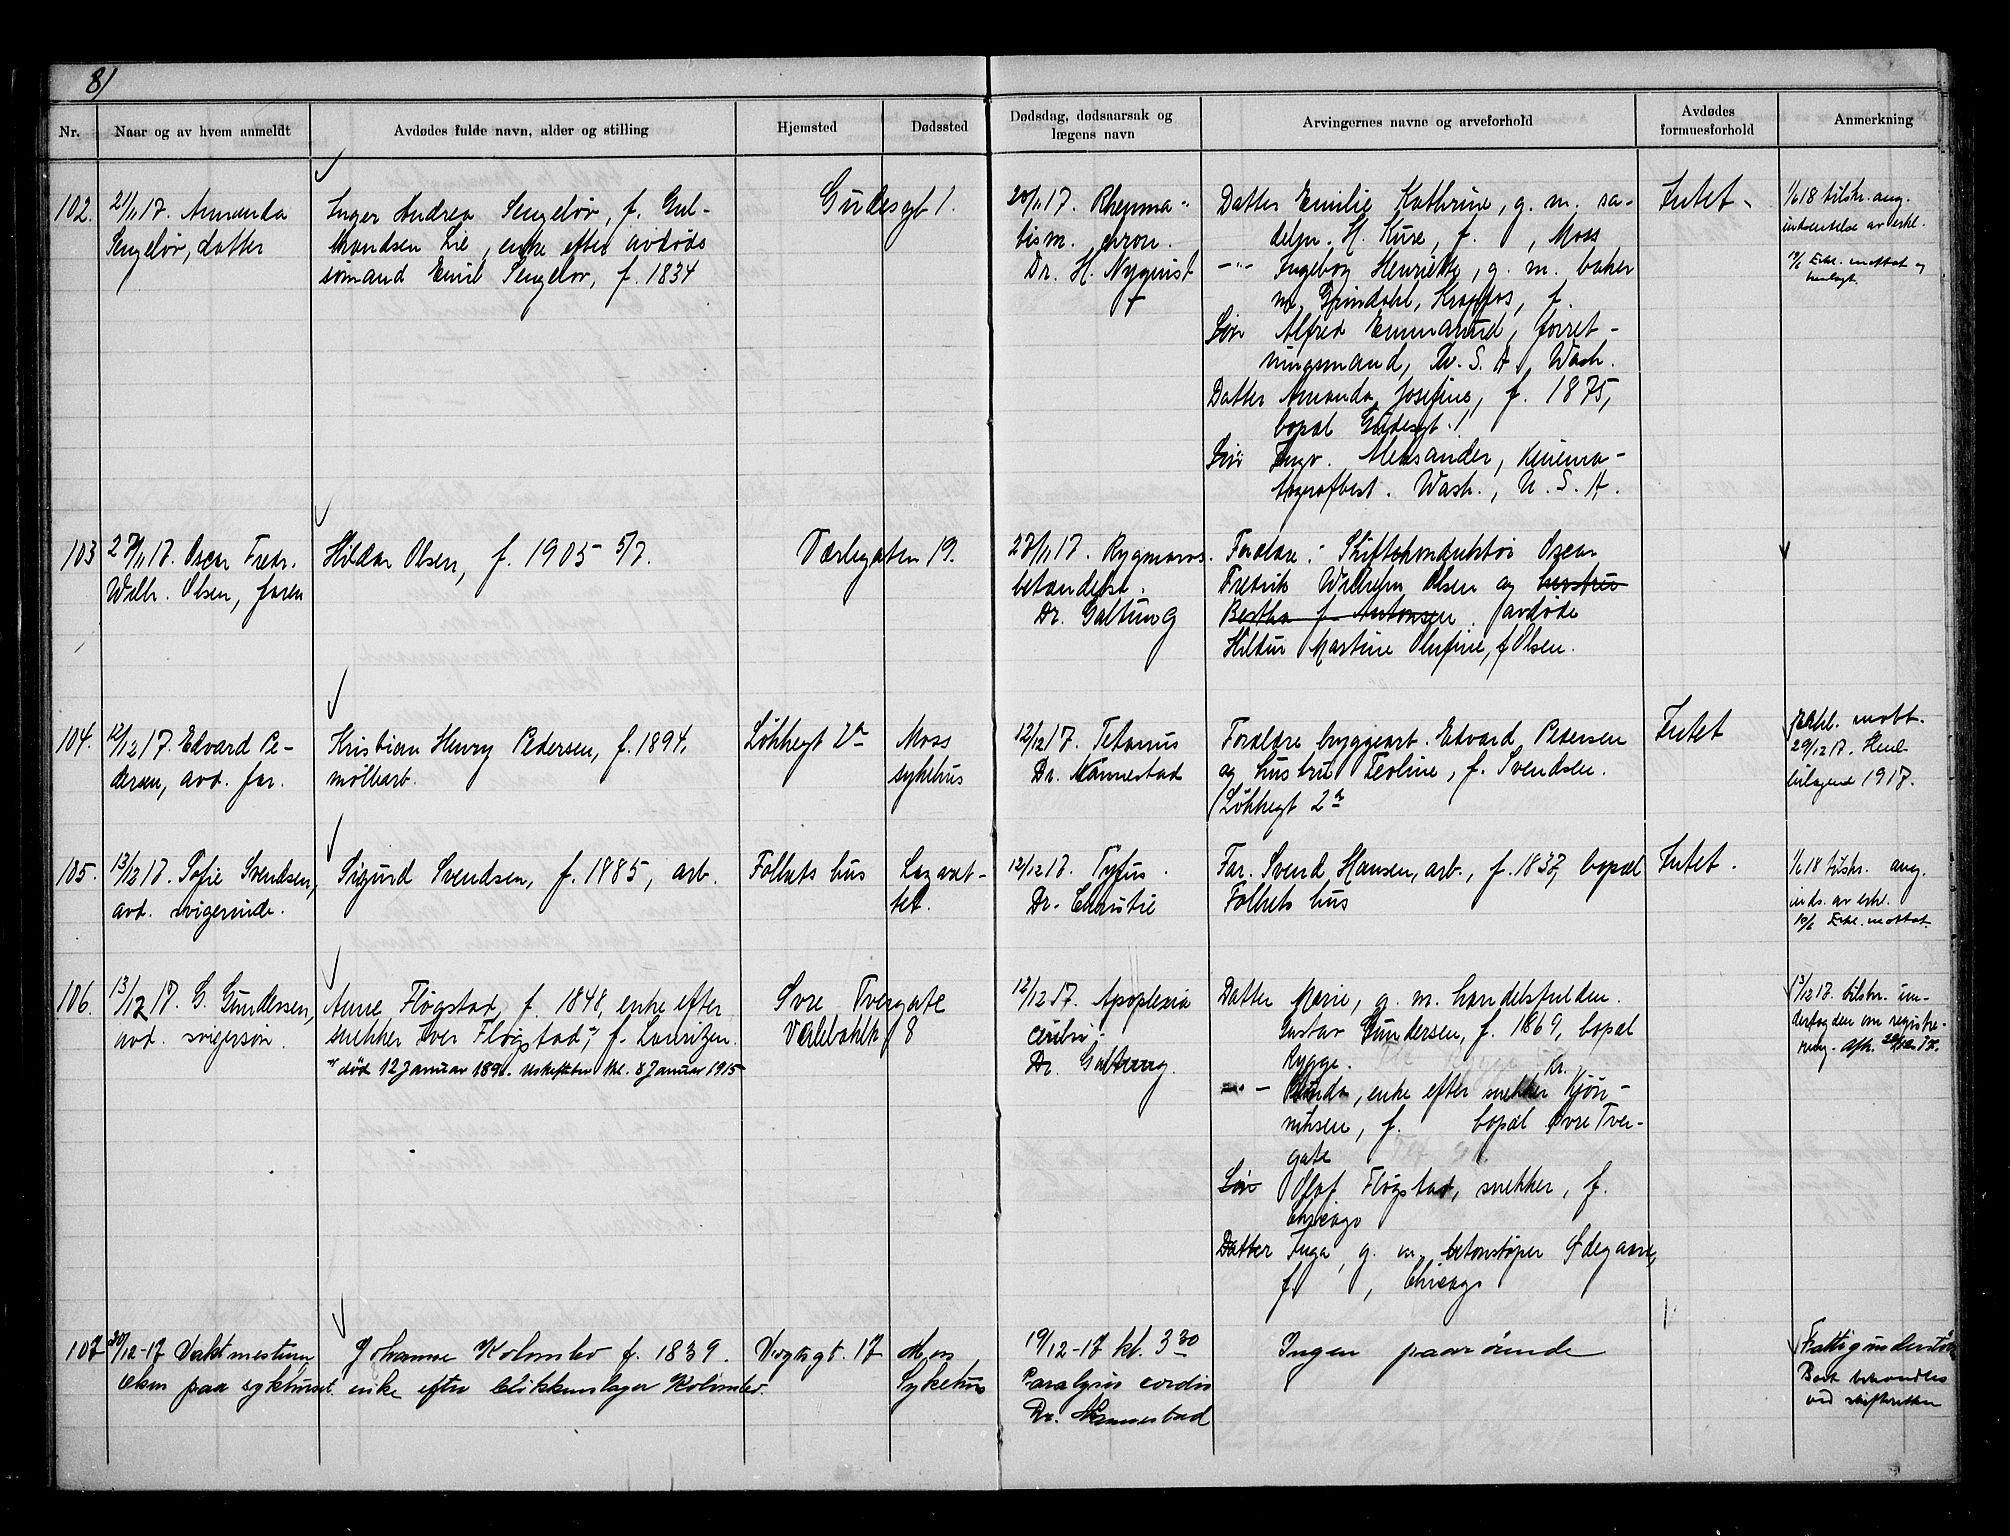 81
Nr.
Naar og av hvem anmeldt
Avdødes fulde navn, alder og stilling
Hjemsted
Dødssted
Dødsdag, dødsaarsak og
lægens navn
Arvingernes navne og arveforhold
Avdødes
formuesforhold
Anmerkning
102.
21/11 17. Amanda
Sengeløv, datter
Inger Andrea Sengeløv, f. Gul-
brandsen Lie, enke efter avdøde
sömand Emil Sengeløv, f. 1834
Gudesgt 1.
20/11 17. Rheuma-
tism. chron.
Dr. H. Nyquist
Datter Emilie Kathrine, g. m. sa-
delm. H. Kure, f. , Moss
-"- Ingeborg Henriette, g. m. baker
M. Grindahl, Krapfos, f.
Søn Alfred Emmanuel, forret-
ningsmand, U. S. A Wash.
Datter Amanda Josefine, f. 1875,
bopæl Gudesgt. 1
Søn Ingv. Aleksander, kinema-
tografbest. Wash., U. S. A.
Intet -
1/6 18 tilskr. ang.
indsendelse av erkl.
10/6 Erkl. mottat og
henlagt.
103
27/11 17. Oscar Fredr.
Wilh. Olsen, faren
Hildar Olsen, f. 1905 5/7.
Værlegaten 19.
27/11 17. Rygmarvs-
betændelse.
Dr. Galtung
Forældre: Skiftekonduktør Oscar
Fredrik Wilhelm Olsen og hustru
Bertha f. Antonsen. avdøde
Hildur Martine Olufine, f Olsen.
104.
12/12 17. Edvard Pe-
dersen, avd. far.
Kristian Henry Pedersen, f. 1894,
møllearb.
Løkkegt 2a
Moss
sykehus
12/12 17. Tetanus
Dr. Nannestad
Forældre bryggearb. Edvard Pedersen
og hustru Teoline, f. Svendsen.
Løkkegt 2a
Intet
Erkl. mott.
29/12 17. Henl
bilagene 1917.
105.
13/12 17. Sofie Svendsen,
avd. svigerinde.
Sigurd Svendsen, f. 1885, arb.
Folkets hus
Lazaret-
tet.
12/12 17. Tyfus.
Dr. Christie
Far. Svend Hansen, arb., f. 1837, bopæl
Folkets hus
Intet.
1/6 18 tilskr. ang.
inds. av erkl.
10/6 Erkl. mottat.
106.
13/12 17. G. Gundersen,
avd. svigersøn.
Anne Fløgstad, f. 1848, enke efter
snekker Iver Fløgstad, f. Lauritzen.
død 12 Januar 189. Uskiftebev. bl. 8 Januar 1915
Øvre Tvergate
Værlebakk 8
12/12 17. Apoplexia
cerebri,
Dr. Galtung.
Datter Marie, g. m. handelsfuldm.
Gustav Gundersen, f. 1869, bopæl
Rygge.
-"- , enke efter snekker Kr. Kjøn-
niksen, f. bopæl Øvre Tver-
gate
Søn Olof Fløgstad, snekker, f.
Chicago
Datter Inga, g. m. betonstøper Ødegaard,
f. , Chicago
13/12 17. tilskr. un-
derfogden om registre-
ring. Afh. 20/12 17.
107
20/12-17 Vaktmesteren
Olsen paa sykehuset.
Johanne Kolomlev f. 1839.
enke efter blikkenslager Kolomlev.
Vogtsgt. 17
Moss
Sykehus
19/12-17 kl. 3 30
Paralysis cordis
Dr. Nannestad
Ingen paarørende
Fattigunderstøt.
Boet behandles
ved skifteretten